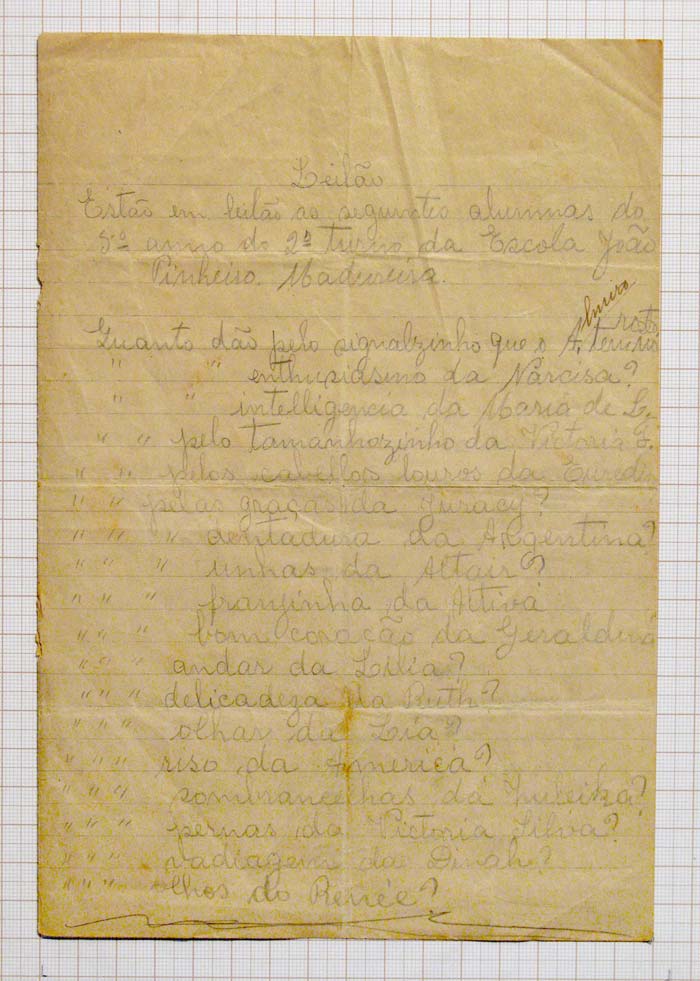 Leilão
Estão em leilão as seguintes alumnas do
5º anno do 2º turno da Escola João
Pinheiro. Madureira.
rosto
Quanto dão pelo signalzinho que o A.
" " enthusiasmo da Narcisa?
" " intelligencia da Maria de L.
" " pelo tamanhozinho da Victoria
" " pelos cabellos louros da
" " pelas graças da Juracy?
" " " dentadura da Argentina?
" " " unhas da Altair?
" " " franzinha da Altiva
" " " bom coração da
" " " andar da Lilia?
" " " delicadeza da Ruth?
" " " olhar da Lia?
" " " riso da America?
" " " sombrancelhas da Zuleika?
" " " pernas da Victoria Silva?
" " " vadiagem da Dinah?
" " " olhos do Renée?